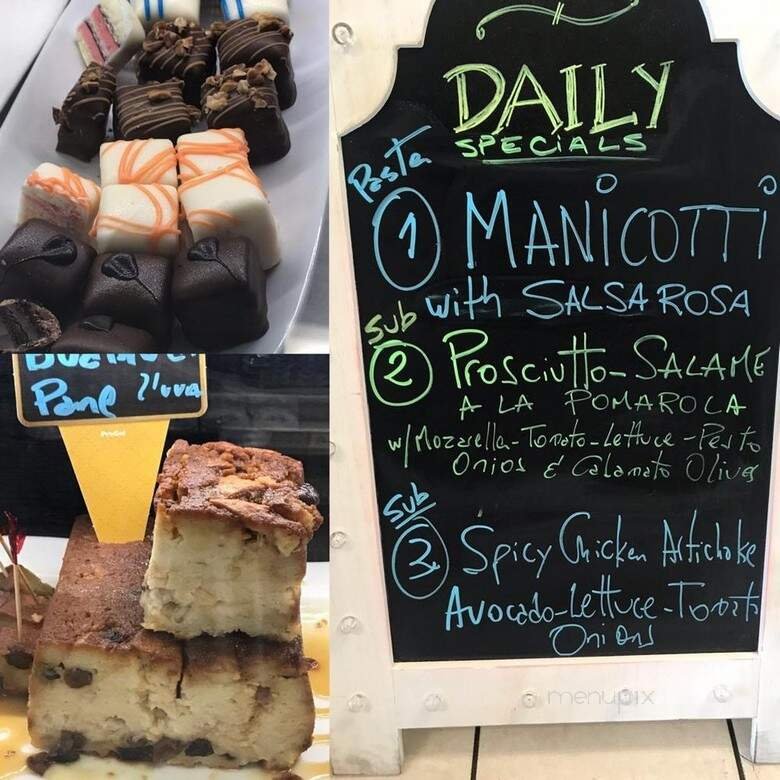 Pane
DAILY
SPECiALS
Pasta
1 MANiCOTTi
with SALSA ROSA
Sub
2 Prosciutto-SALAME
A LA POMAROLA
w/Mozzarella-Tomato-Lettuce-Pesto
Onios & Calamata Olives
Sub
3 Spicy Chicken Artichoke
Avocado-Lettuce-Tomato
Onions
menupix